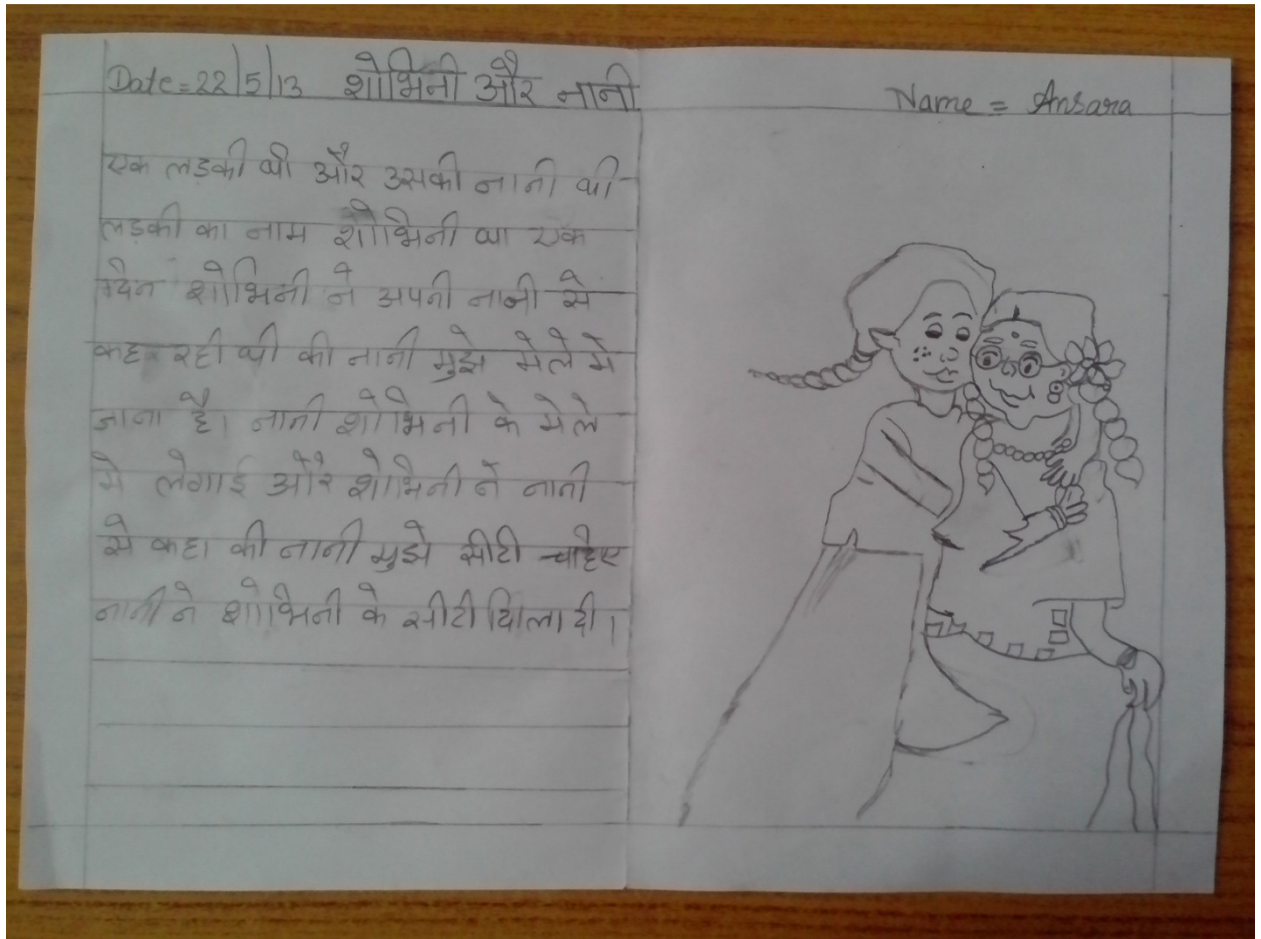 Date = 22/5/13 शोभिनी और नानी
Name = Ansara
एक लड़की थी और उसकी नानी थी
लड़की का नाम शोभिनी था एक
दिन शोभिनी ने अपनी नानी से
कह रही थी की नानी मुझे मेले मे
जाना है। नानी शोभिनी के मेले
मे लेगाई और शोभिनी ने नानी
से कहा की नानी मुझे सीटी चाहिए
नानी ने शोभिनी के सीटी दिला दी।